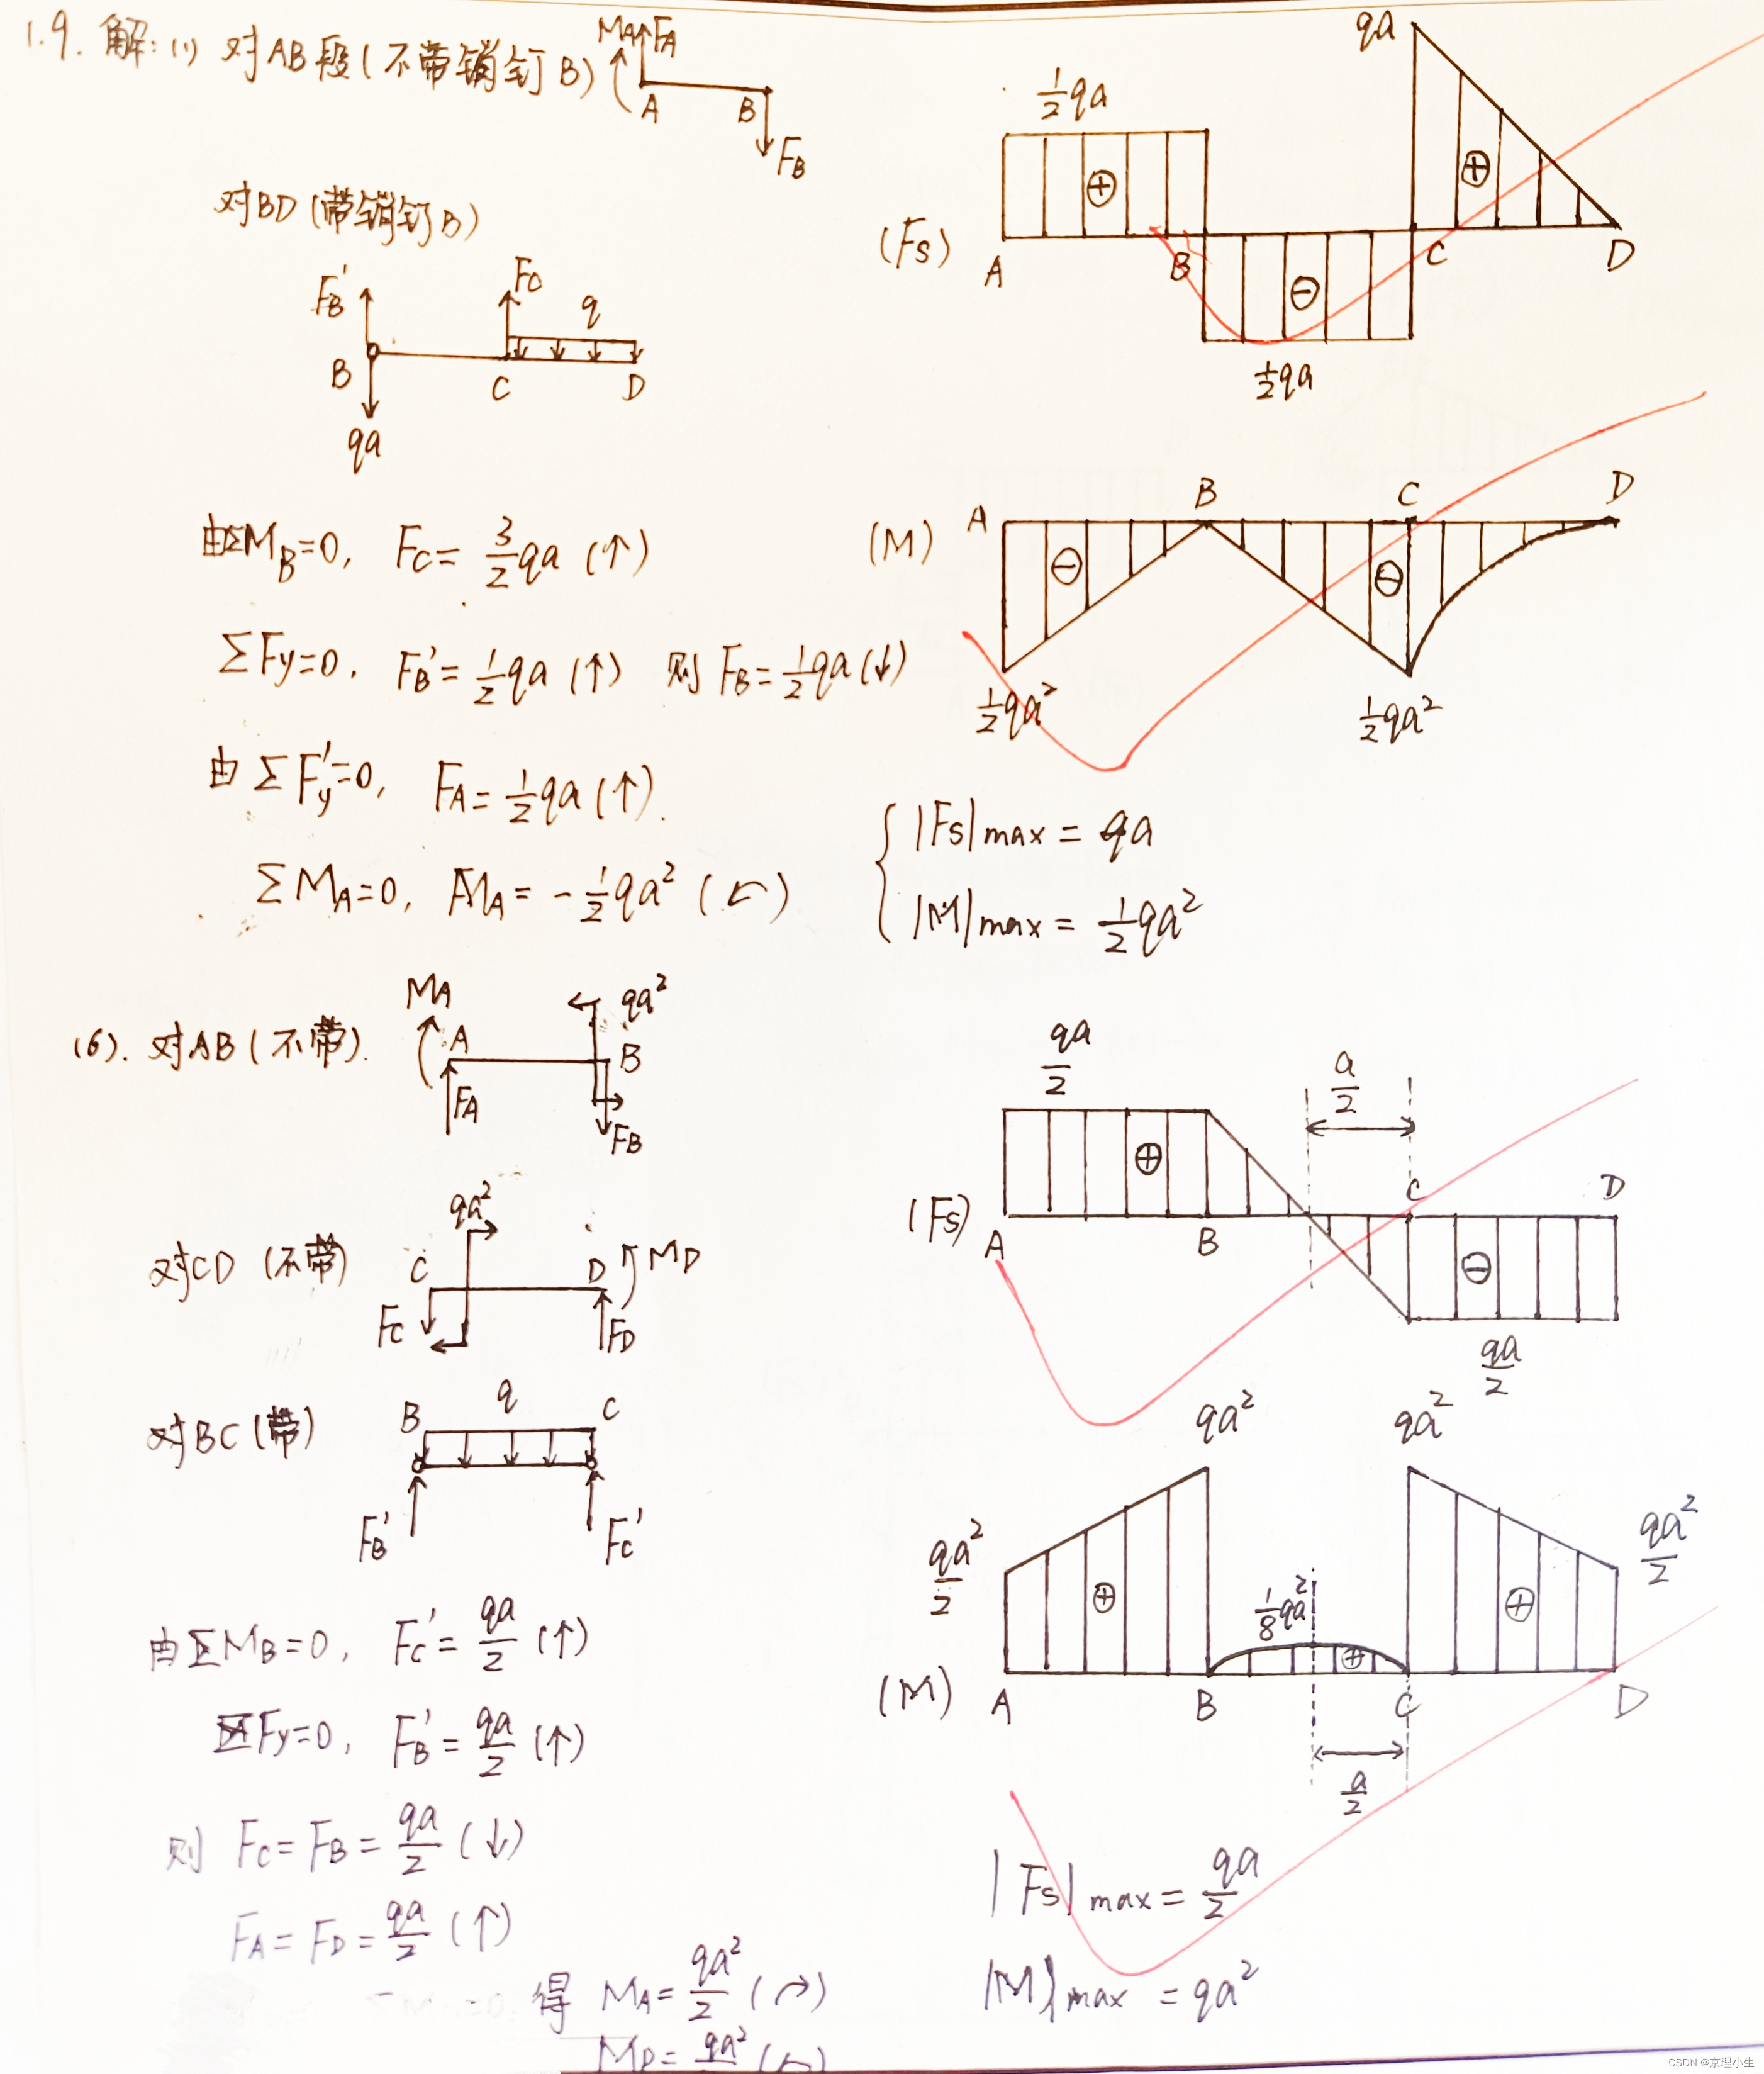 1.9. 解: (1) 对AB段(不带销钉B)
MA FA
A B
FB
对BD(带销钉B)
FB' FC q
B C D
qa
由ΣMB=0, FC= 3/2 qa (↑)
ΣFy=0, FB'= 1/2 qa (↑) 则 FB= 1/2 qa (↓)
由 ΣFy'=0, FA= 1/2 qa (↑).
ΣMA=0, MA= - 1/2 qa² (↶)
qa
1/2 qa
⊕ ⊕
(Fs) A B C D
⊖
1/2 qa
B C D
(M) A
⊖ ⊖
1/2 qa² 1/2 qa²
{ |Fs|max = qa
|M|max = 1/2 qa²
(6). 对AB(不带).
MA qa²
A B
FA FB
对CD (不带)
qa²
C D MD
FC FD
对BC(带)
q
B C
FB' FC'
由ΣMB=0, FC'= qa/2 (↑)
ΣFy=0, FB'= qa/2 (↑)
则 FC=FB= qa/2 (↓)
FA=FD= qa/2 (↑)
得 MA= qa²/2 (↷)
MD= qa²
qa/2 a/2
⊕
(Fs) A B C D
⊖
qa/2
qa² qa²
qa²/2 1/8 qa² qa²/2
⊕ ⊕ ⊕
(M) A B C D
a/2
|Fs|max = qa/2
|M|max = qa²
CSDN @京理小生